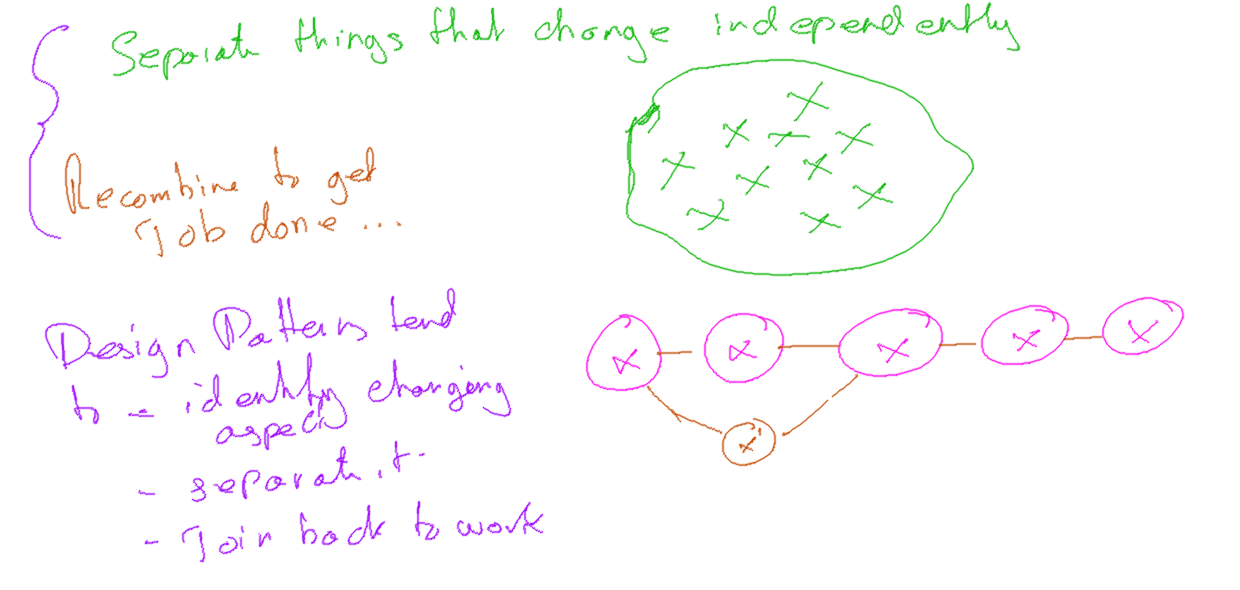 Separate things that change independently
Recombine to get
Job done ...
Design Patterns tend
to - identify changing
aspect
- separate it.
- Join back to work